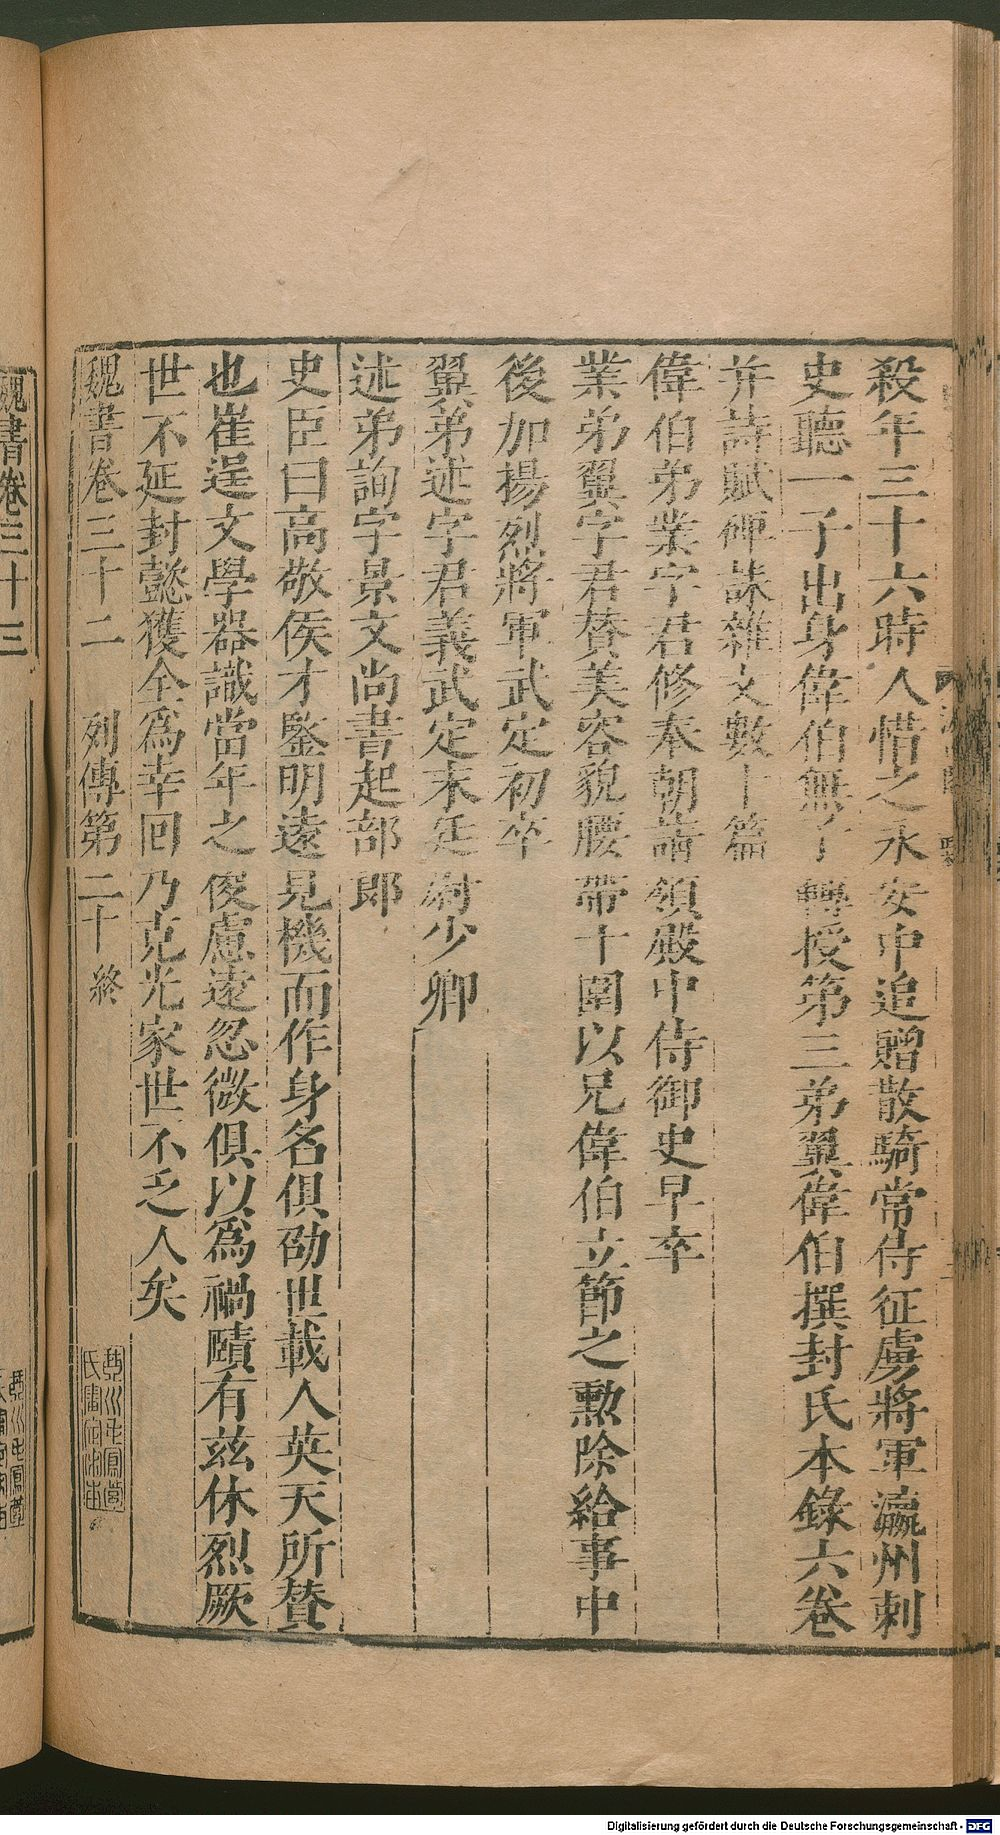 殺年三十六時人惜之永安中追贈散騎常侍征虜將軍瀛州刺
史聽一子出身偉伯無子轉授第三弟翼偉伯撰封氏本錄六卷
并詩賦碑誄雜文數十篇
偉伯弟業字君修奉朝請領殿中侍御史早卒
業弟翼字君贊美容貌腰帶十圍以兄偉伯立節之勲除給事中
後加揚烈將軍武定初卒
翼弟述字君義武定末廷尉少卿
述弟詢字景文尚書起部郎
史臣曰高敬侯才鑒明遠見機而作身名俱劭世載人英天所贊
也崔逞文學器識當年之俊慮遠忽微俱以爲禍賾有兹休烈厥
世不延封懿獲全爲幸囘乃克光家世不乏人矣
魏書卷三十二 列傳第二十 終
魏書卷三十三
Digitalisierung gefördert durch die Deutsche Forschungsgemeinschaft - DFG